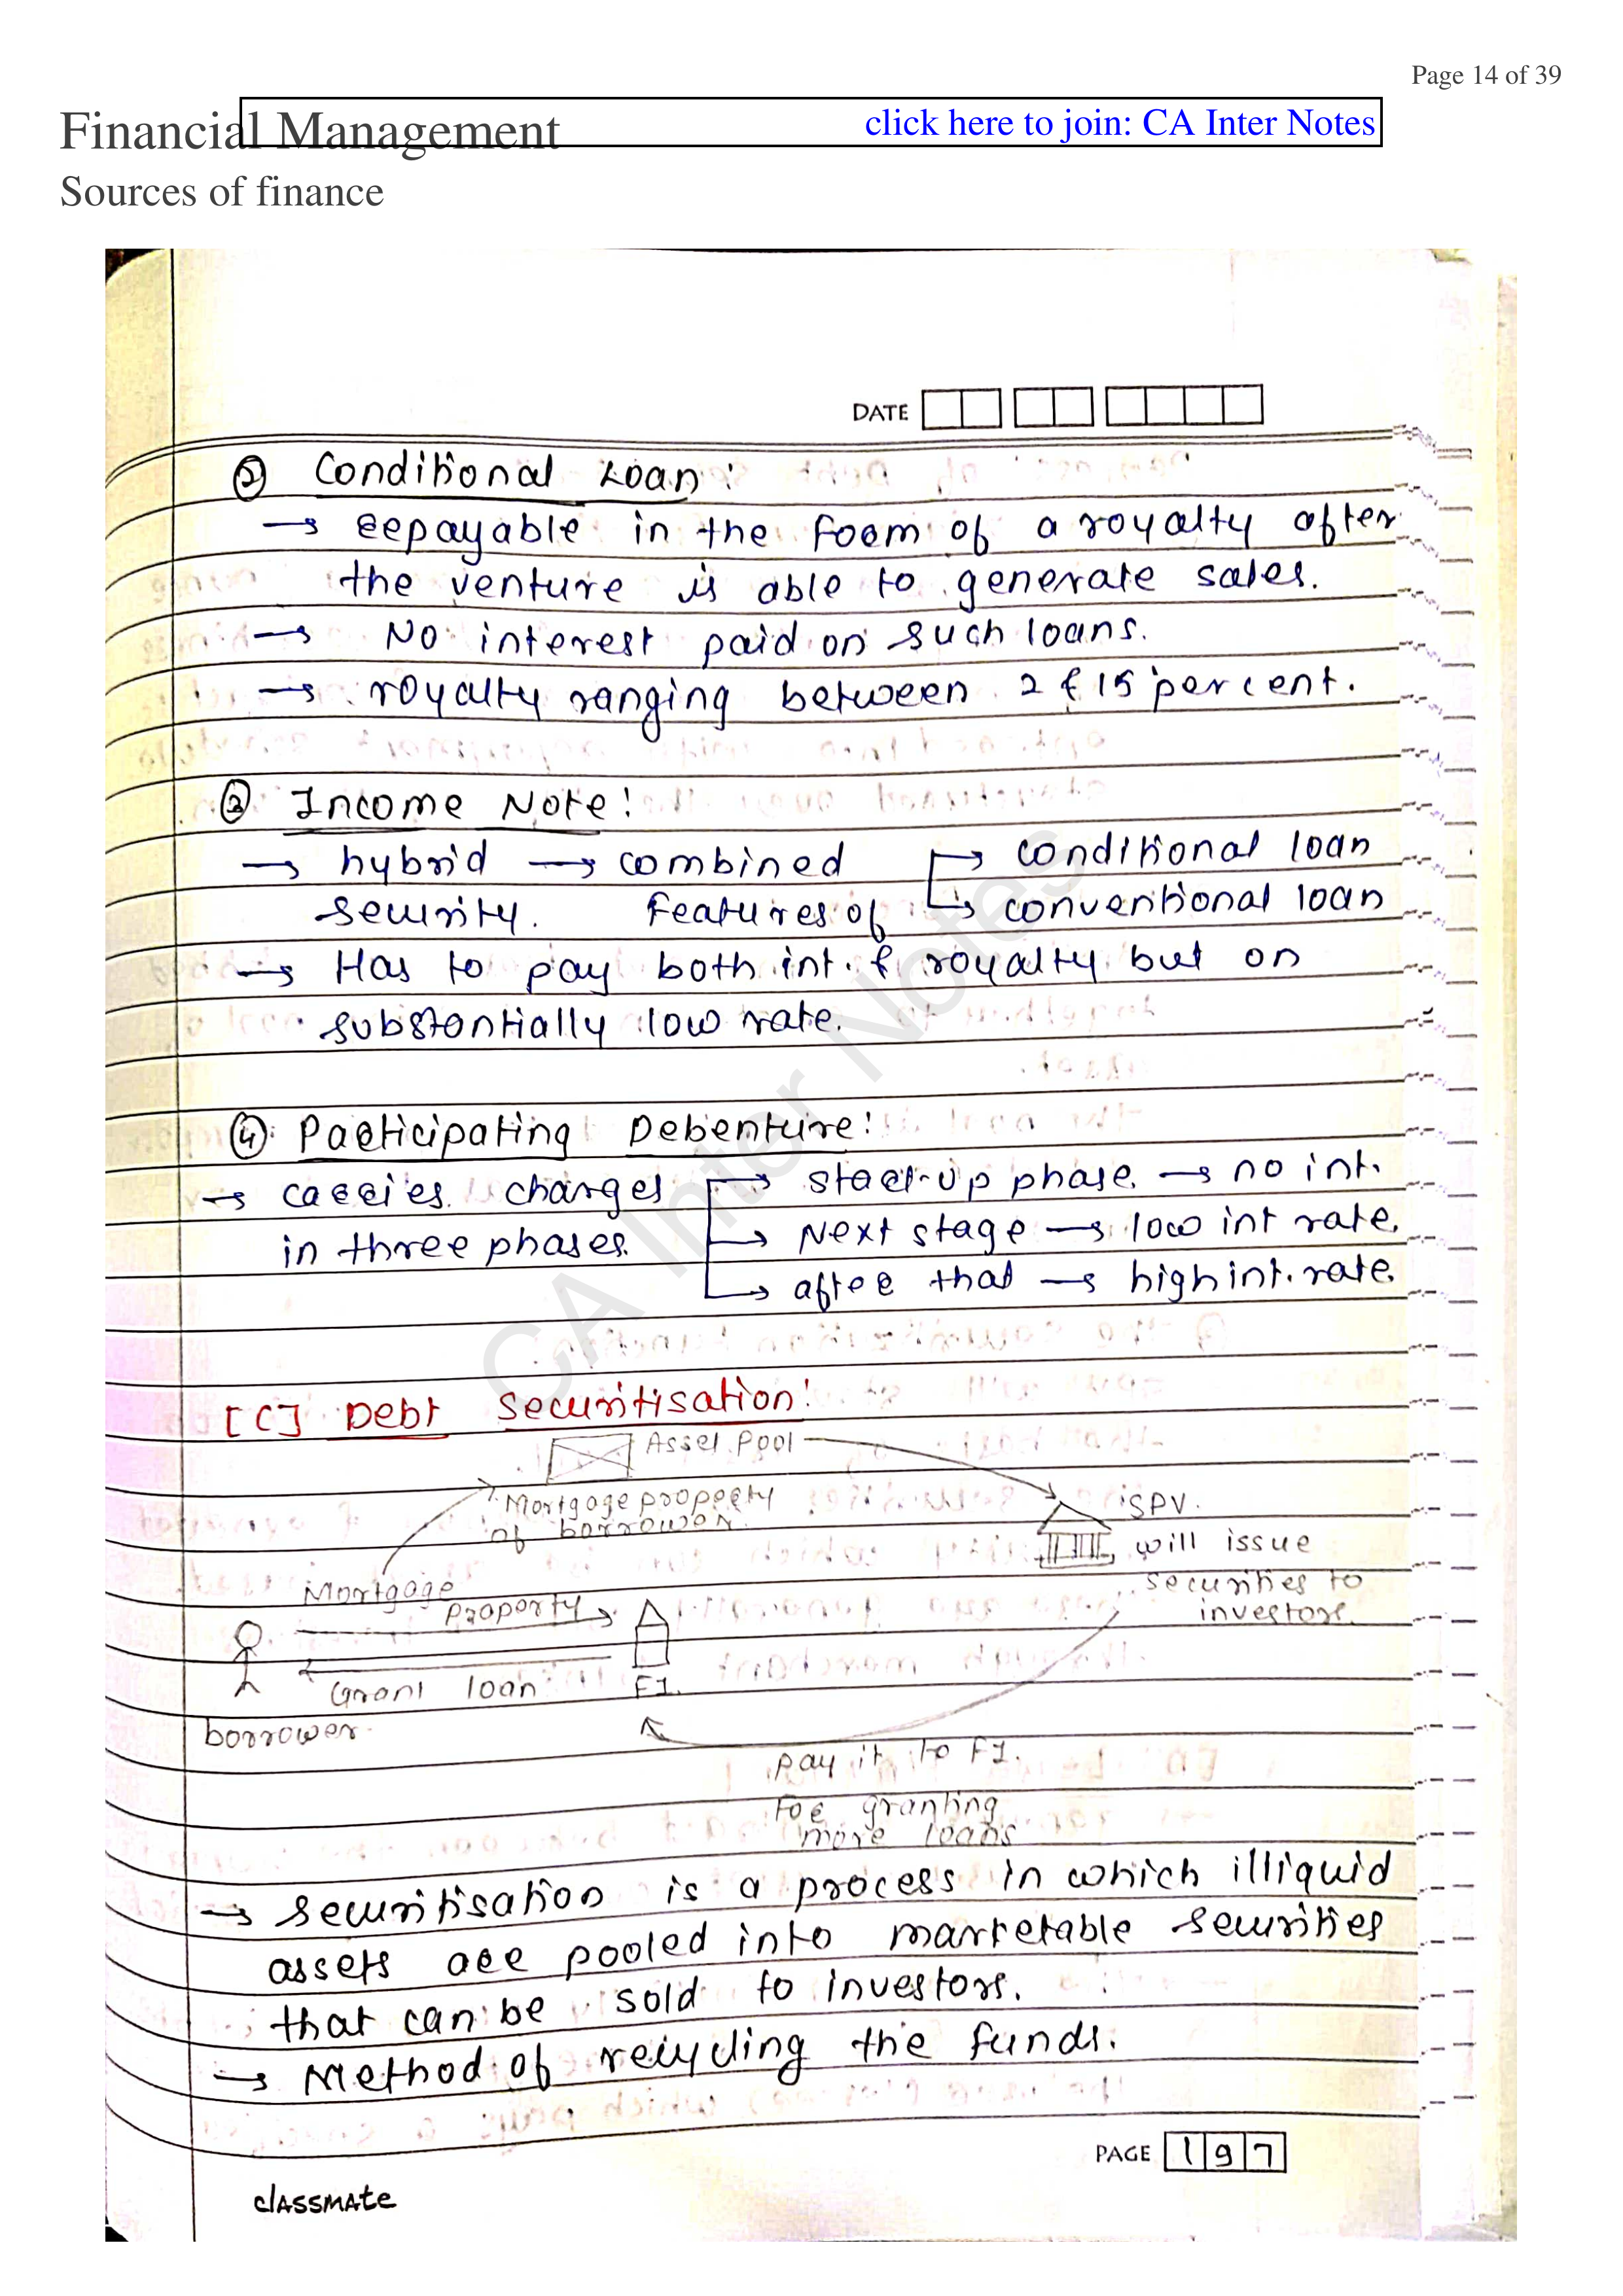 Page 14 of 39
Financial Management
click here to join: CA Inter Notes
Sources of finance
DATE
② Conditional Loan:
→ repayable in the form of a royalty after
the venture is able to generate sales.
→ No interest paid on such loans.
→ royalty ranging between 2 & 15 percent.
③ Income Note:
→ hybrid → combined → conditional loan
security. features of → conventional loan
→ Has to pay both int. & royalty but on
substantially low rate.
④ Participating Debenture:
→ carries charges → start-up phase → no int.
in three phases. → Next stage → low int rate.
→ after that → high int. rate.
[C] Debt Securitisation:
Asset Pool
Mortgage property
of borrower.
SPV.
will issue
securities to
investors.
Mortgage
Property
Grant loan
F.I.
borrower
pay it to F.I.
For granting
more loans
→ Securitisation is a process in which illiquid
assets are pooled into marketable securities
that can be sold to investors.
→ Method of recycling the funds.
PAGE 197
classmate
CA Inter Notes